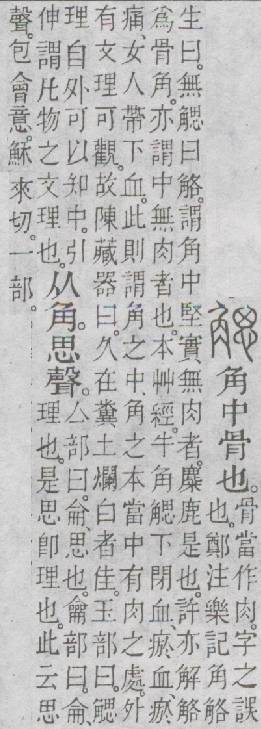 䚡角中骨也。
骨當作肉。字之誤
也。鄭注樂記角觡
生曰。無䚡曰觡。謂角中堅實、無肉者。麋鹿是也。許亦解觡
爲骨角。亦謂中無肉者也。本艸經。牛角䚡下閉血、瘀血、瘀
痛、女人帶下血。此則謂角之中、角之本當中有肉之處。外
有文理可觀。故陳藏器曰。久在糞土爛白者佳。玉部曰。䚡
理自外可以知中。引
伸謂凡物之文理也。
从角。思聲。
亼部曰。侖、思也。龠部曰。侖、
理也。是思卽理也。此云思
聲。包會意。穌來切。一部。